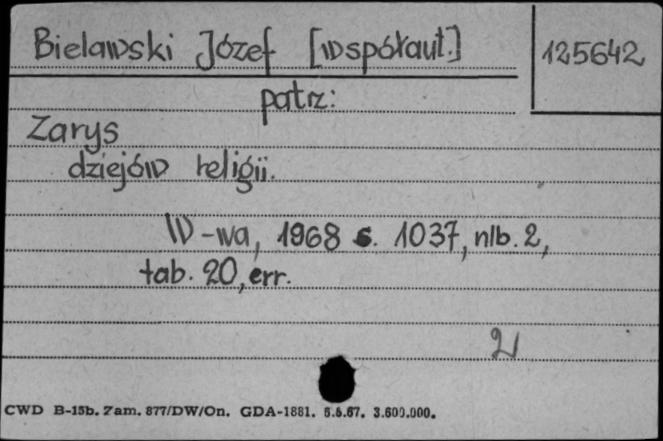 Bielawski Józef [współaut.]
125642
patrz:
Zarys
dziejów religii.
W-wa, 1968 s. 1037, nlb. 2,
tab. 20, err.
CWD B-15b. Zam. 877/DW/On. GDA-1881. 6.6.67. 3.600.000.